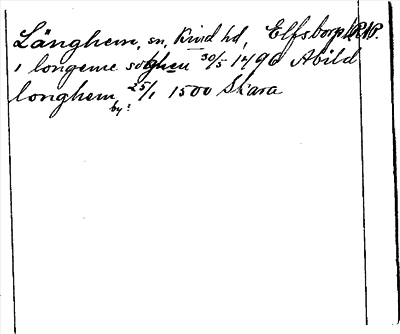 Länghem, sn, Kind hd, Elfsborg l. RAP.
i longeme soghen 30/5 1496 Abild
longhem 25/1 1500 Skara
by: